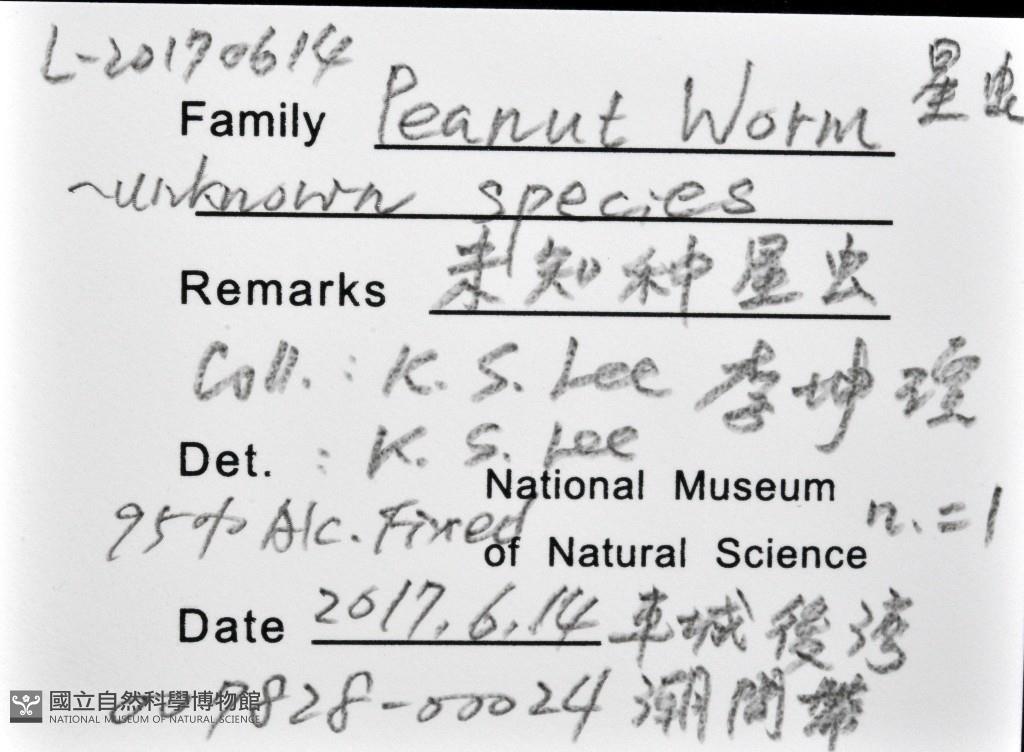 L-20170614
Family Peanut Worm 星虫
~unknown species
Remarks 未知种星虫
Coll.: K. S. Lee 李坤瑄
Det. : K. S. Lee
National Museum
95% Alc. Fixed n.=1
of Natural Science
Date 2017.6.14 車城後湾
828-00024 潮間帶
國立自然科學博物館
NATIONAL MUSEUM OF NATURAL SCIENCE